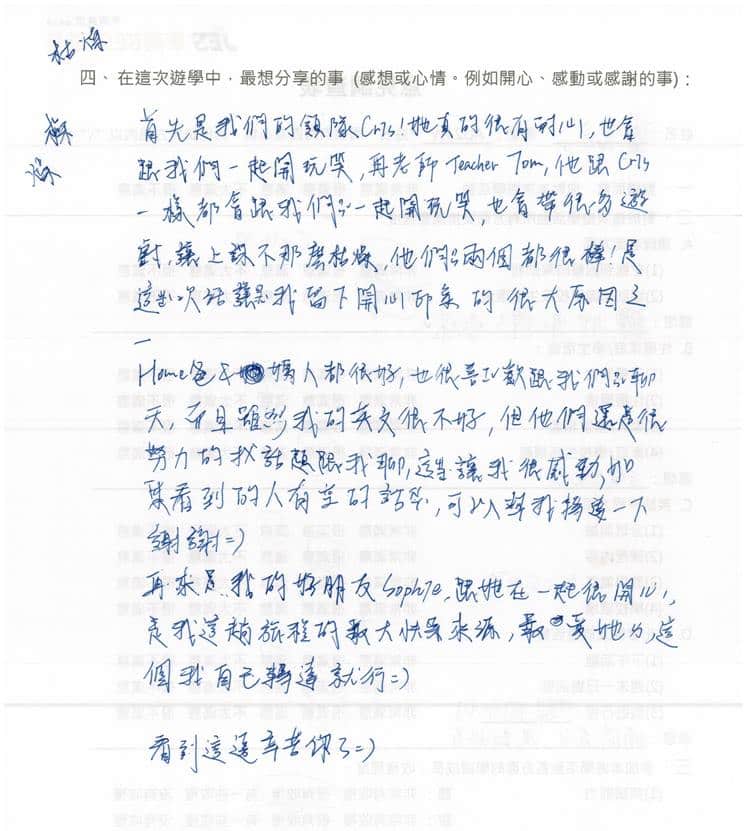 枯燥
四、在這次遊學中，最想分享的事 (感想或心情。例如開心、感動或感謝的事)：
首先是我們的領隊Cris!她真的很有耐心,也會
跟我們一起開玩笑,再老師 Teacher Tom,他跟 Cris
一樣都會跟我們一起開玩笑,也會帶很多遊
戲,讓上課不那麼枯燥,他們兩個都很棒!是
這次讓我留下開心印象的很大原因之
一
Home爸 媽人都很好,也很喜歡跟我們聊
天,而且雖然我的英文很不好,但他們還是很
努力的找話題跟我聊,這讓我很感動,如
果看到的人有空的話,可以幫我換達一下
謝謝=)
再來是我的好朋友Sophie,跟她在一起很開心,
是我這趟旅程的最大快樂來源,最愛她了,這
個我自己轉達就行=)
看到這邊辛苦你了=)